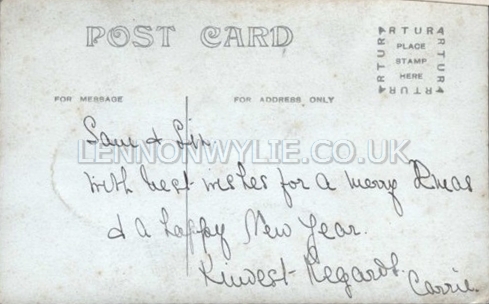 POST CARD
ARTURA
ARTURA
ARTURA
ARTURA
PLACE
STAMP
HERE
FOR MESSAGE
FOR ADDRESS ONLY
Sam & Lil
LENNONWYLIE.CO.UK
With best wishes for a merry Xmas
& a happy New Year.
Kindest Regards.
Carrie.